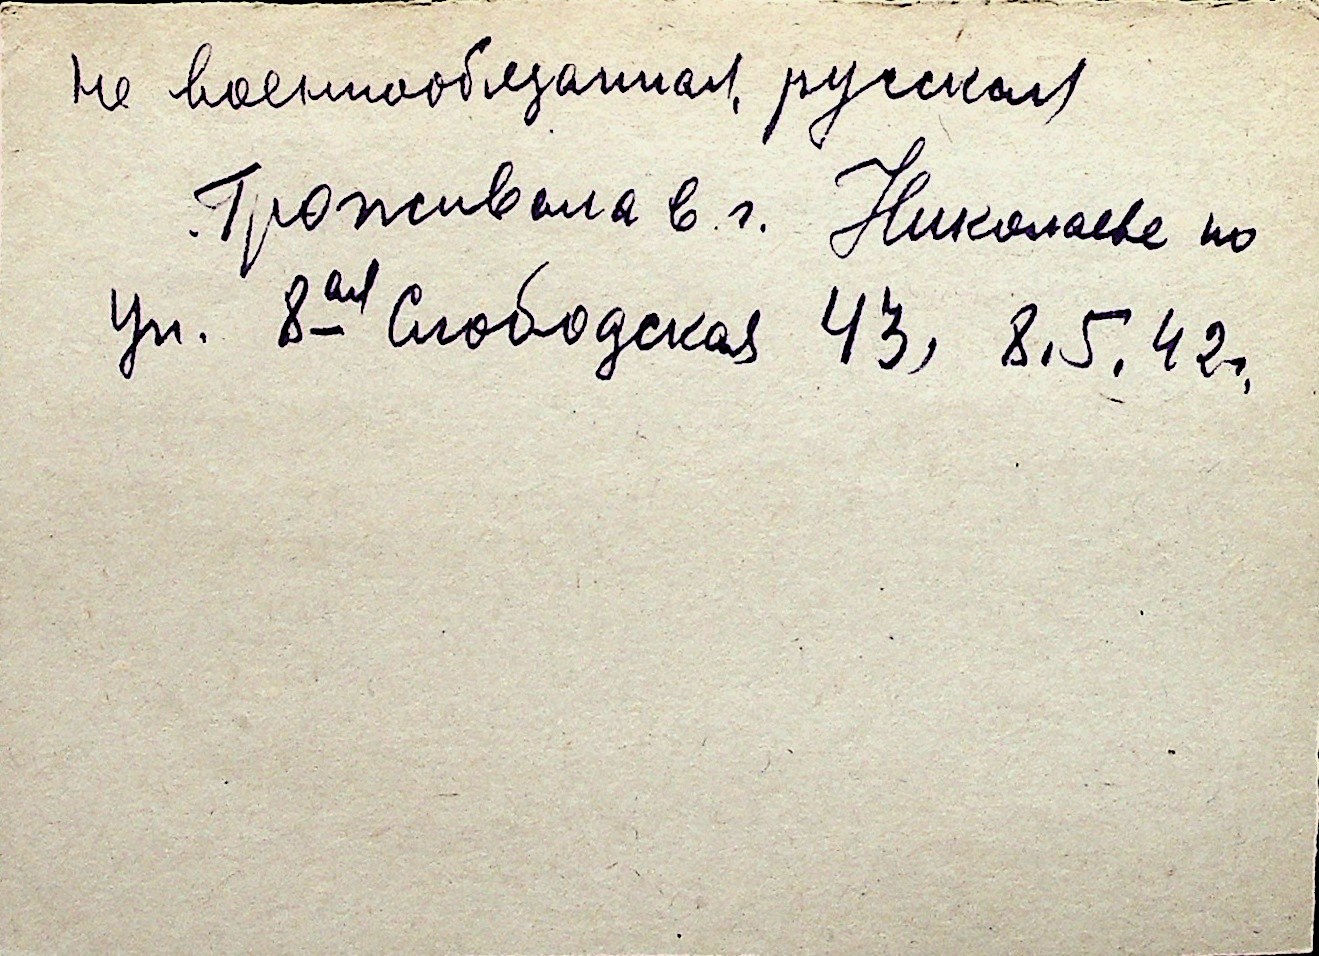 не военнообязанная, русская
Проживала в г. Николаеве по
ул. 8ая Слободская 43, 8.5.42г.